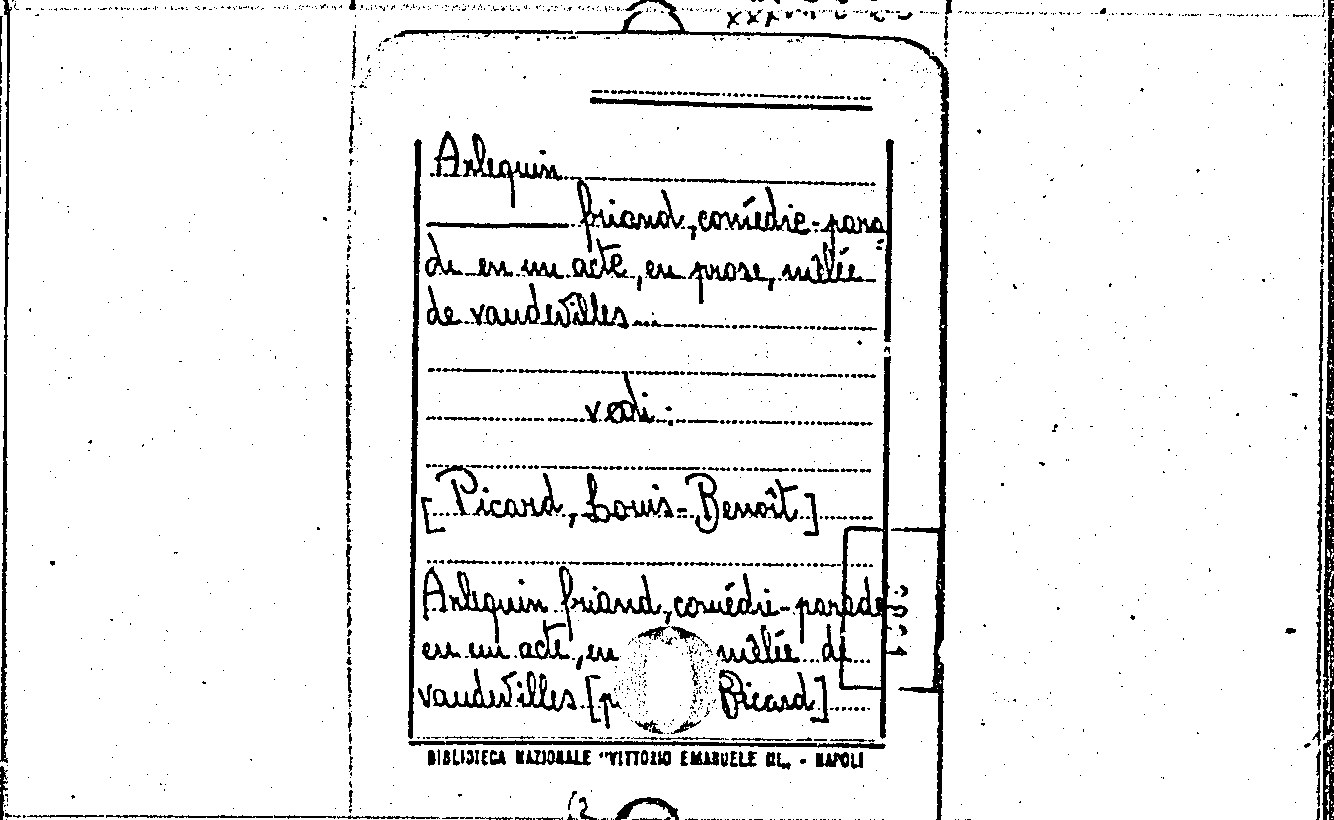 Arlequin
friand, comédie-para-
de en un acte, en prose, mêlée
de vaudevilles...
vedi:
[Picard, Louis-Benoît]
Arlequin friand, comédie-parade
en un acte, en mêlée de
vaudevilles [p Picard]
BIBLIOTECA NAZIONALE "VITTORIO EMANUELE III„ - NAPOLI